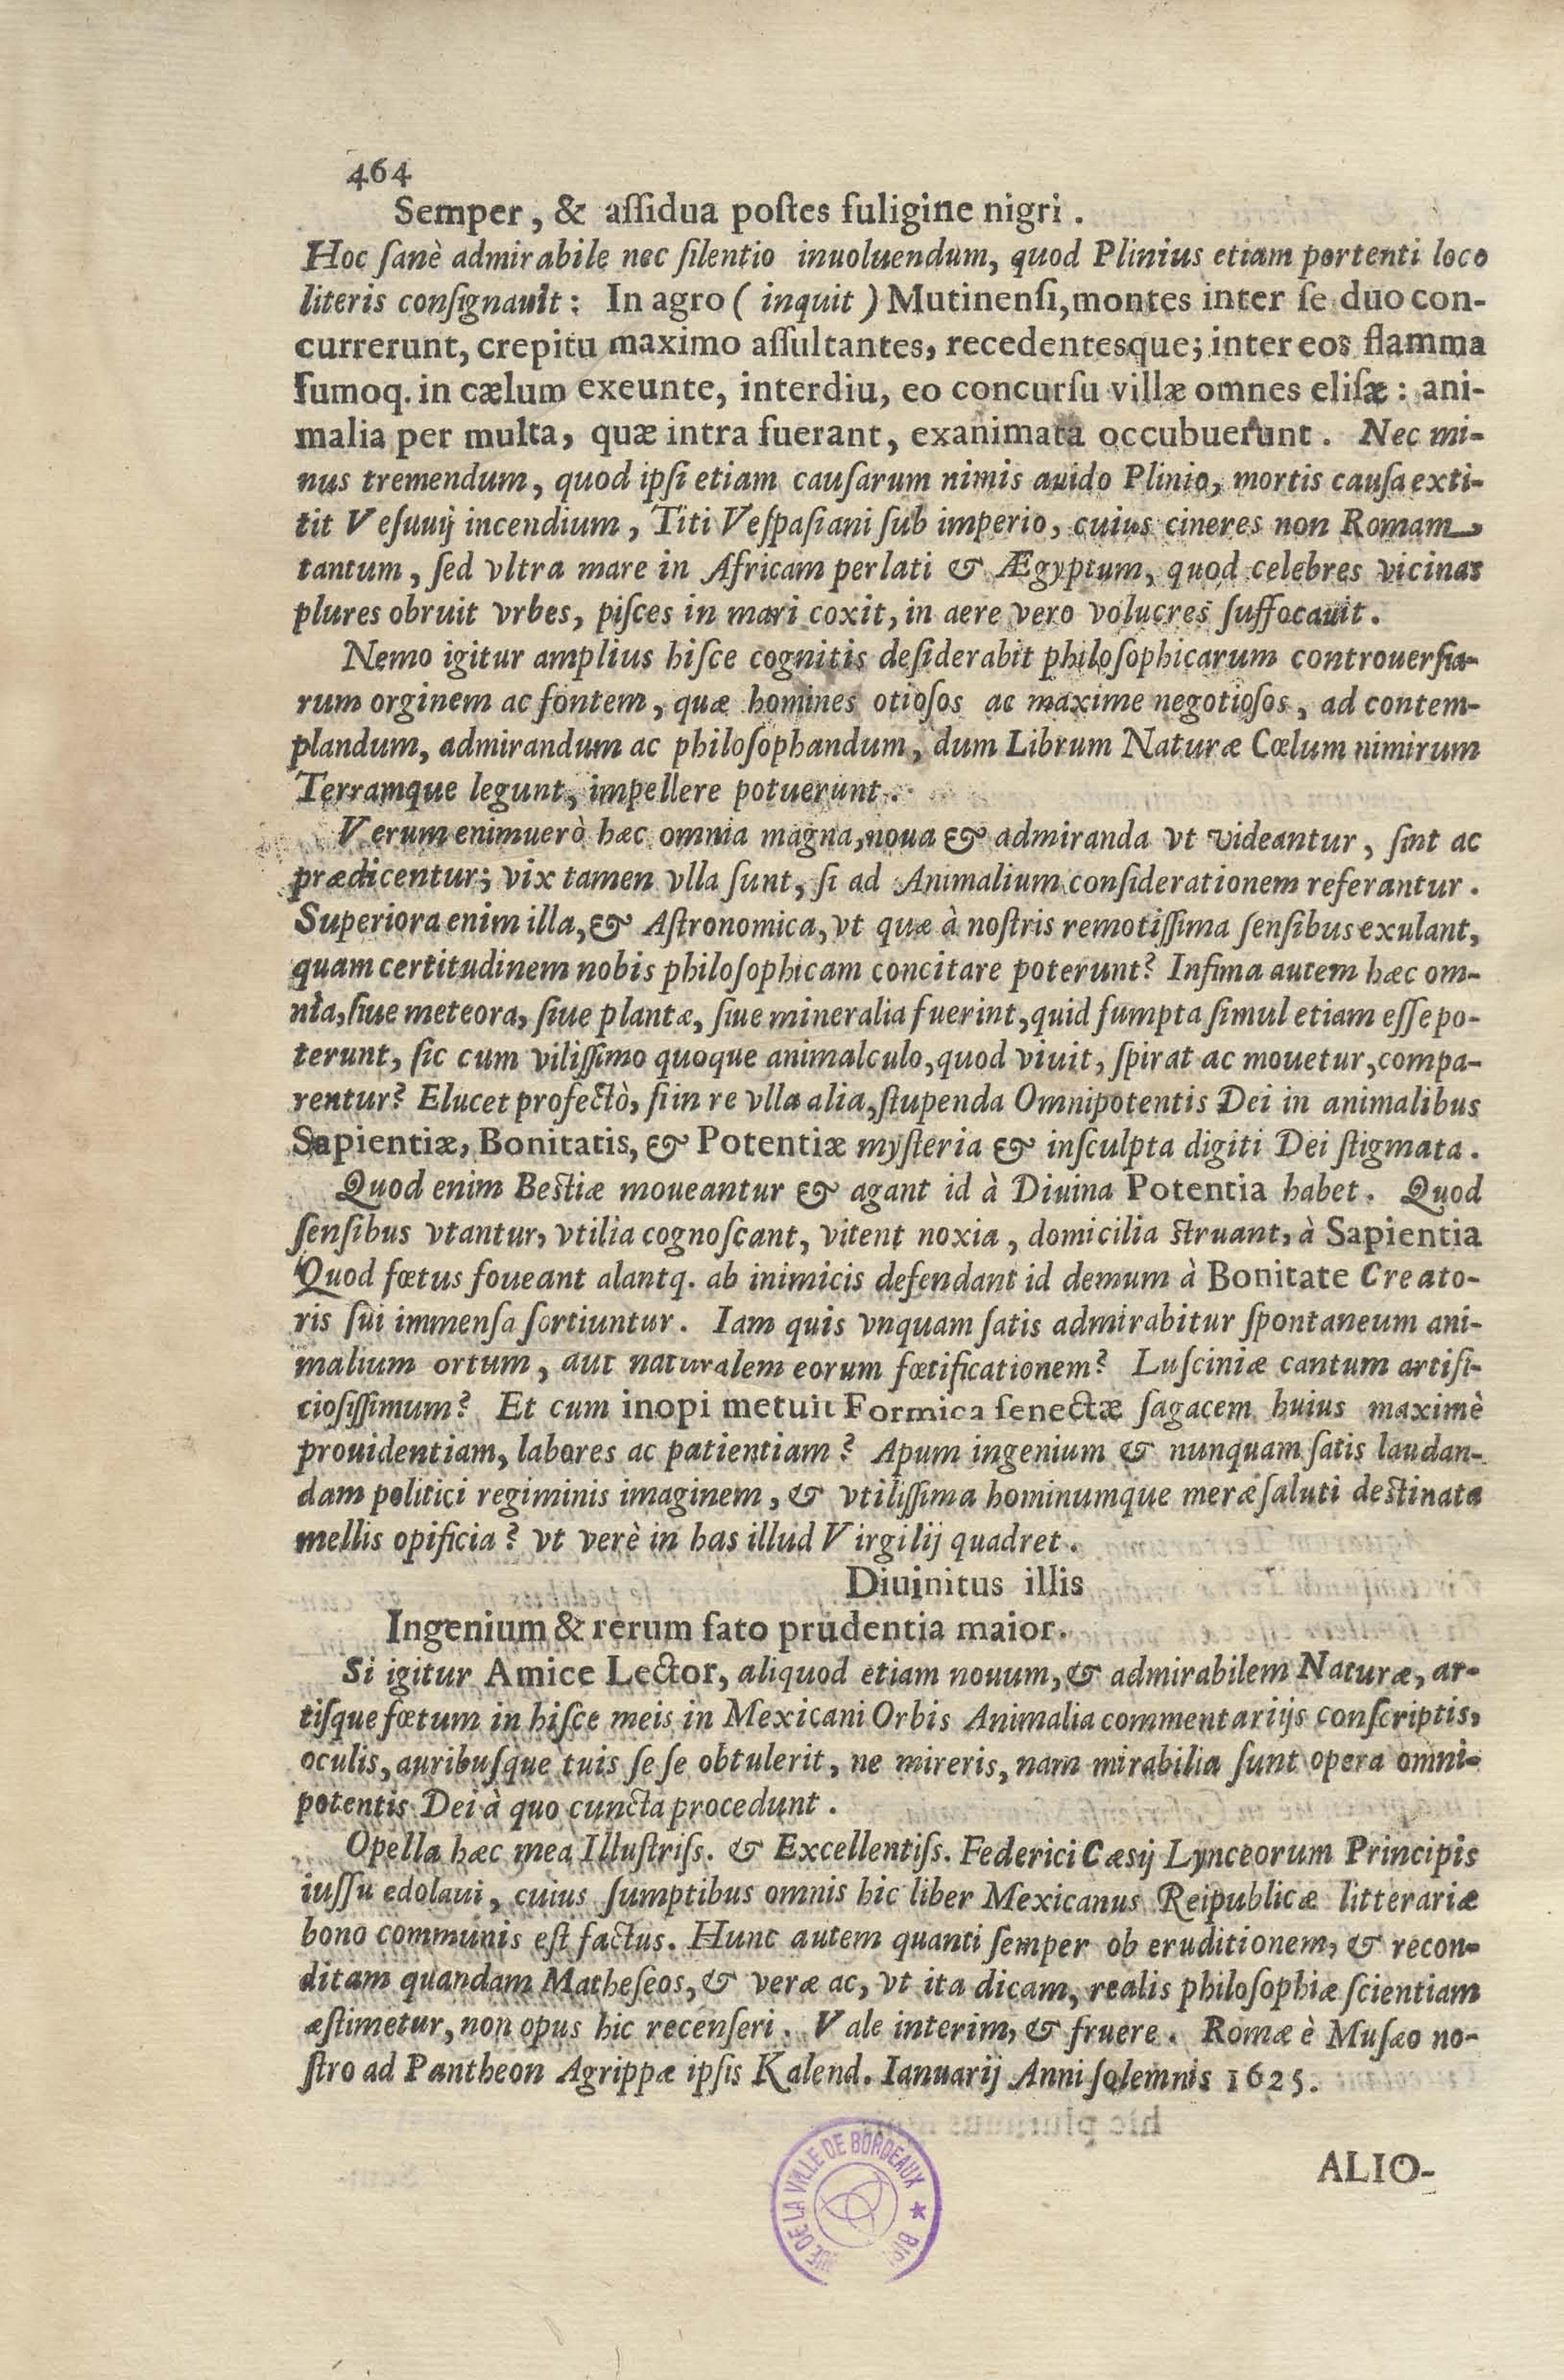 464
Semper, & aſſidua poſtes fuligine nigri.
Hoc ſanè admirabile nec ſilentio inuoluendum, quod Plinius etiam portenti loco
literis conſignauit: In agro (inquit) Mutinenſi, montes inter ſe duo con-
currerunt, crepitu maximo aſſultantes, recedentesque; inter eos flamma
fumoq. in cælum exeunte, interdiu, eo concurſu villæ omnes eliſæ: ani-
malia per multa, quæ intra fuerant, exanimata occubuerunt. Nec mi-
nus tremendum, quod ipſi etiam cauſarum nimis auido Plinio, mortis cauſa exti-
tit Veſuuij incendium, Titi Veſpaſiani ſub imperio, cuius cineres non Romam
tantum, ſed vltra mare in Africam perlati & Ægyptum, quod celebres vicinas
plures obruit vrbes, piſces in mari coxit, in aere vero volucres ſuffocauit.
Nemo igitur amplius hiſce cognitis deſiderabit philoſophicarum controuerſia-
rum orginem ac fontem, quæ homines otioſos ac maxime negotioſos, ad contem-
plandum, admirandum ac philoſophandum, dum Librum Naturæ Cœlum nimirum
Terramque legunt, impellere potuerunt.
Verumenimuerò hæc omnia magna, noua & admiranda vt videantur, ſint ac
prædicentur; vix tamen vlla ſunt, ſi ad Animalium conſiderationem referantur.
Superiora enim illa, & Aſtronomica, vt quæ à noſtris remotiſſima ſenſibus exulant,
quam certitudinem nobis philoſophicam concitare poterunt? Infima autem hæc om-
nia, ſiue meteora, ſiue plantæ, ſiue mineralia fuerint, quid ſumpta ſimul etiam eſſe po-
terunt, ſic cum viliſſimo quoque animalculo, quod viuit, ſpirat ac mouetur, compa-
rentur? Elucet profectò, ſi in re vlla alia, ſtupenda Omnipotentis Dei in animalibus
Sapientiæ, Bonitatis, & Potentiæ myſteria & inſculpta digiti Dei ſtigmata.
Quod enim Beſtiæ moueantur & agant id à Diuina Potentia habet. Quod
ſenſibus vtantur, vtilia cognoſcant, vitent noxia, domicilia ſtruant, à Sapientia
Quod fœtus foueant alantq. ab inimicis defendant id demum à Bonitate Creato-
ris ſui immenſa ſortiuntur. Iam quis vnquam ſatis admirabitur ſpontaneum ani-
malium ortum, aut naturalem eorum fœtificationem? Luſciniæ cantum artifi-
cioſiſſimum? Et cum inopi metuit Formica ſenectæ ſagacem huius maximè
prouidentiam, labores ac patientiam? Apum ingenium & nunquam ſatis laudan-
dam politici regiminis imaginem, & vtiliſſima hominumque meræ ſaluti deſtinata
mellis opificia? vt verè in has illud Virgilij quadret.
Diuinitus illis
Ingenium & rerum fato prudentia maior.
Si igitur Amice Lector, aliquod etiam nouum, & admirabilem Naturæ, ar-
tiſque fœtum in hiſce meis in Mexicani Orbis Animalia commentariijs conſcriptis,
oculis, auribuſque tuis ſe ſe obtulerit, ne mireris, nam mirabilia ſunt opera omni-
potentis Dei à quo cuncta procedunt.
Opella hæc mea Illuſtriſs. & Excellentiſs. Federici Cæsij Lynceorum Principis
iuſſu edolaui, cuius ſumptibus omnis hic liber Mexicanus Reipublicæ litterariæ
bono communis eſt factus. Hunc autem quanti ſemper ob eruditionem, & recon-
ditam quandam Matheſeos, & veræ ac, vt ita dicam, realis philoſophiæ ſcientiam
æſtimetur, non opus hic recenſeri. Vale interim, & fruere. Romæ è Muſæo no-
ſtro ad Pantheon Agrippæ ipſis Kalend. Ianuarij Anni ſolemnis 1625.
ALIO-
DE LA VILLE DE BORDEAUX ★